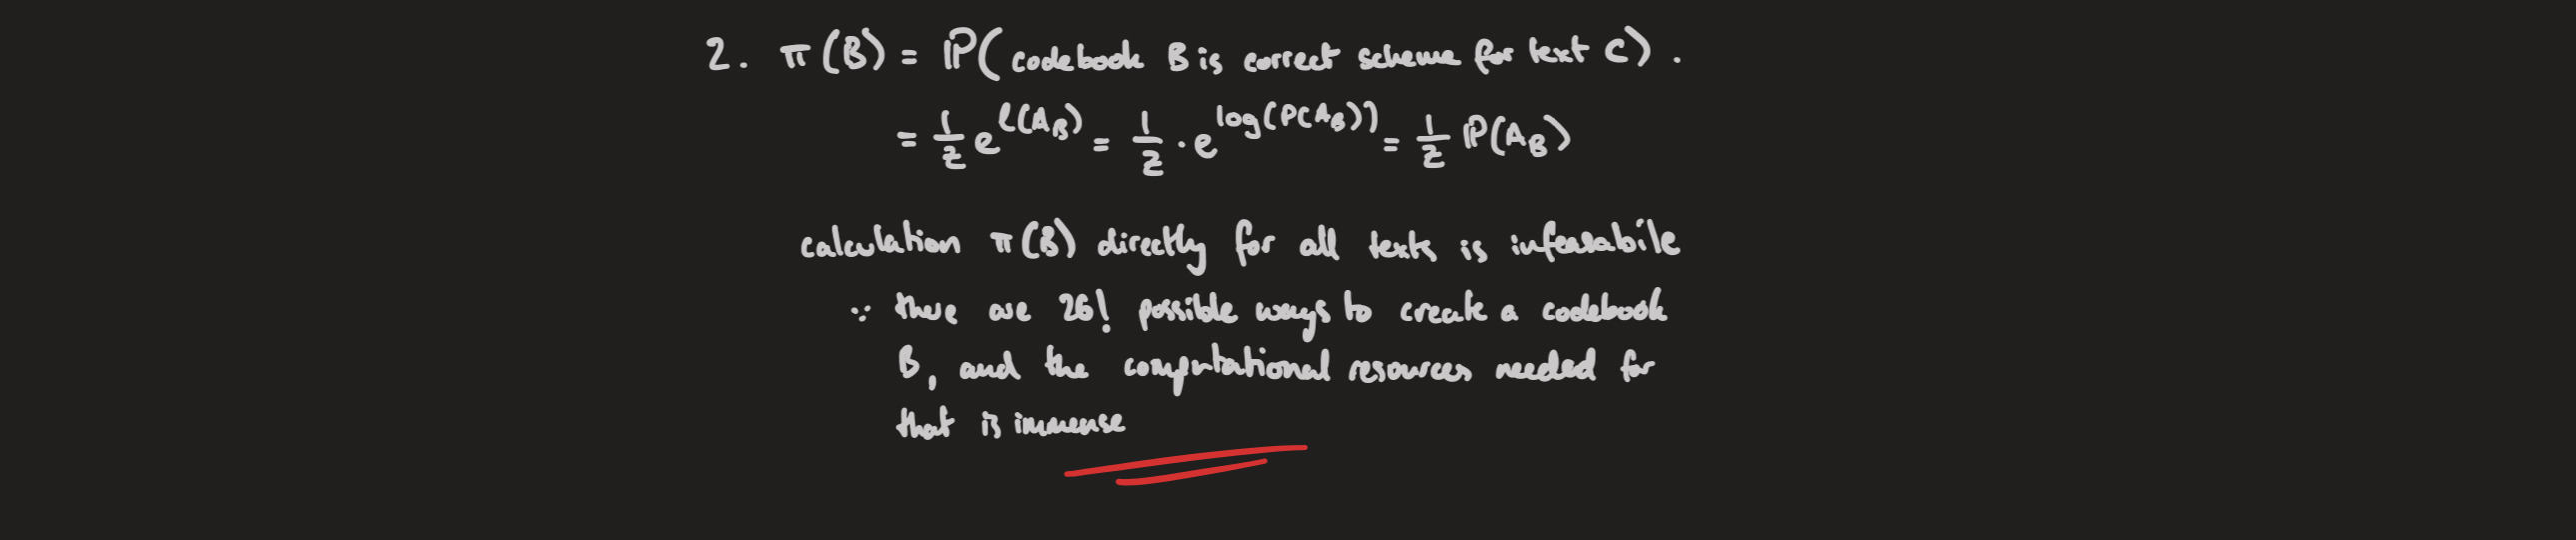 2. π(B) = ℙ(codebook B is correct scheme for text C).
= 1/z e^{ℓ(A_B)} = 1/z · e^{log(P(A_B))} = 1/z ℙ(A_B)
calculation π(B) directly for all texts is infeasabile
∵ there are 26! possible ways to create a codebook
B, and the computational resources needed for
that is immense